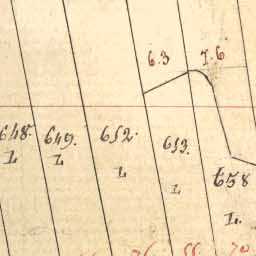 6.3 7.6
648. 649. 652. 653.
L L L L
658
L.